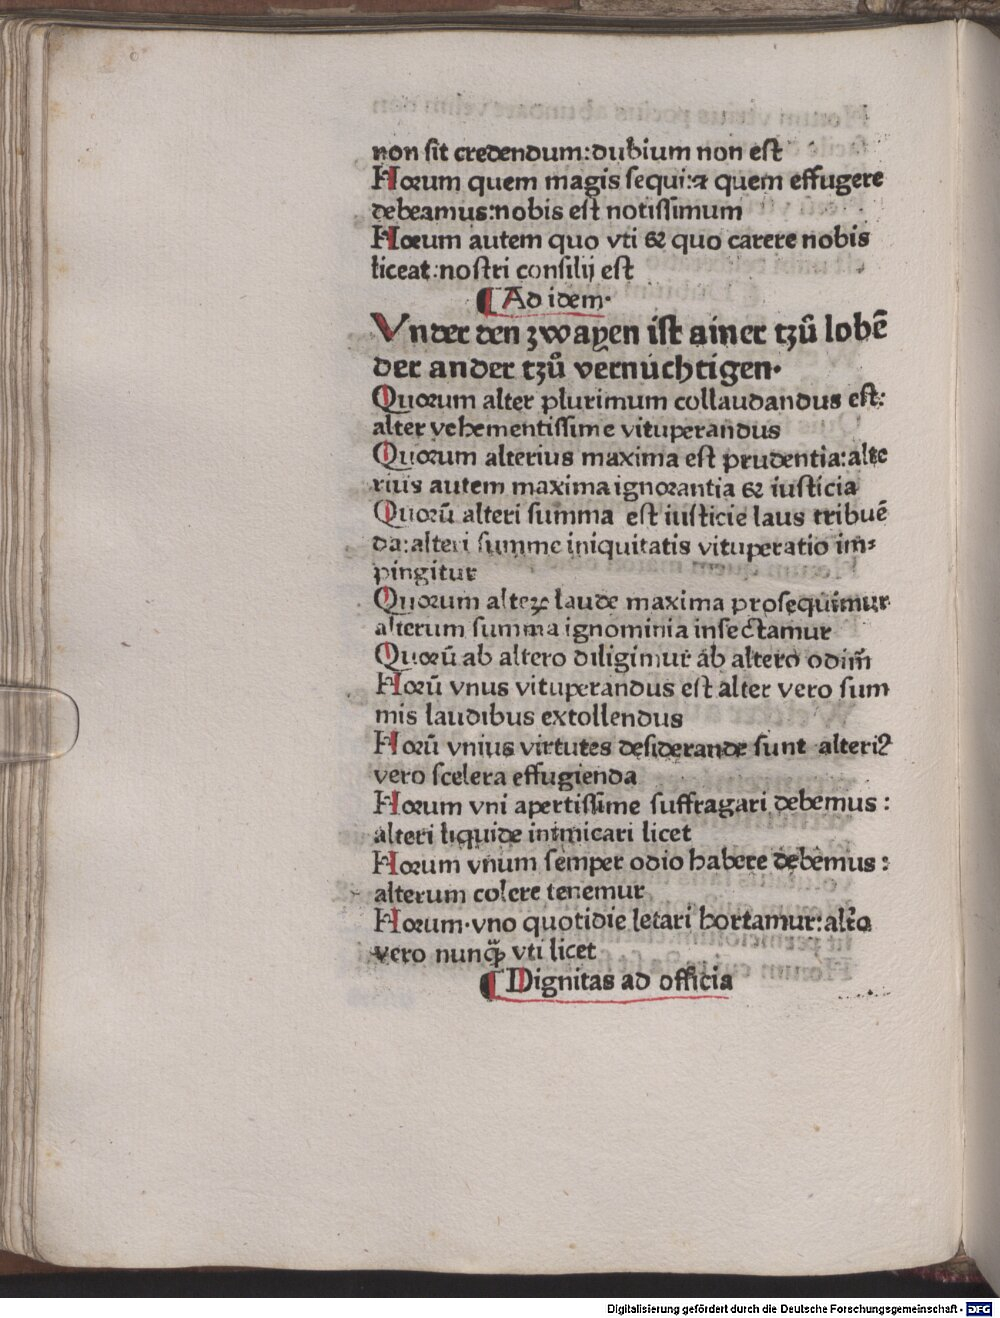 non sit credendum:dubium non est
Horum quem magis sequi:⁊ quem effugere
debeamus:nobis est notissimum
Horum autem quo vti & quo carere nobis
liceat:nostri consilij est
¶ Ad idem·
Vnder den zwayen ist ainer tzů lobē
der ander tzů vernúchtigen·
Quorum alter plurimum collaudandus est:
alter vehementissime vituperandus
Quorum alterius maxima est prudentia:alte
rius autem maxima ignorantia & iusticia
Quorū alteri summa est iusticie laus tribuē
da:alteri summe iniquitatis vituperatio im⸗
pingitur
Quorum alteꝝ laude maxima prosequimur
alterum summa ignominia insectamur
Quorū ab altero diligimur ab altero odim̄
Horū vnus vituperandus est alter vero sum
mis laudibus extollendus
Horū vnius virtutes desiderande sunt alteriꝰ
vero scelera effugienda
Horum vni apertissime suffragari debemus :
alteri liquide inimicari licet
Horum vnum semper odio habere debemus :
alterum colere tenemur
Horum·vno quotidie letari hortamur:alt̄o
vero nunq̄ vti licet
¶ Dignitas ad officia
Digitalisierung gefördert durch die Deutsche Forschungsgemeinschaft - DFG